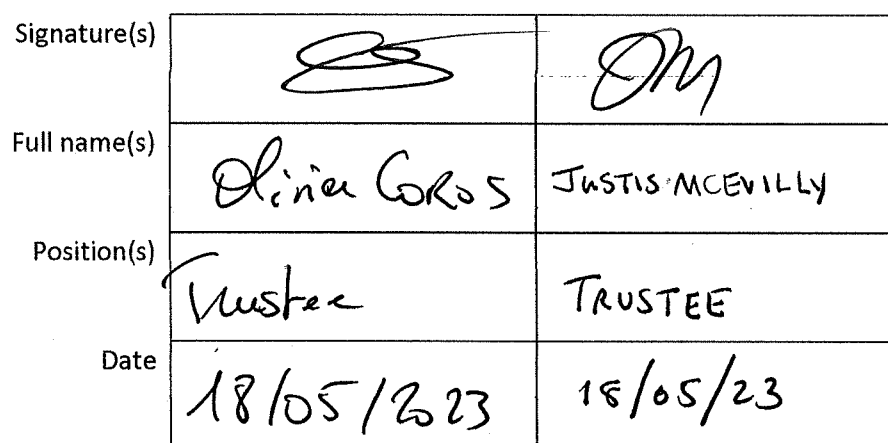 Signature(s)
Full name(s) Olivier COROS JUSTIS MCEVILLY
Position(s) Trustee TRUSTEE
Date 18/05/2023 18/05/23